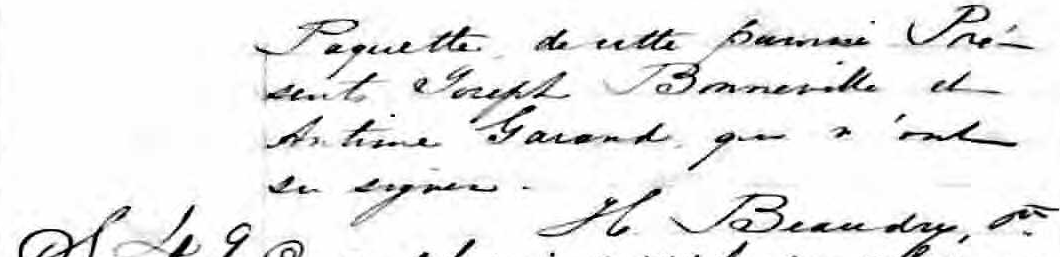 Paquette, de cette paroisse Pré-
sents Joseph Bonneville et
Antime Garand qui n'ont
su signer.
H. Beaudry, Ptre
S 49